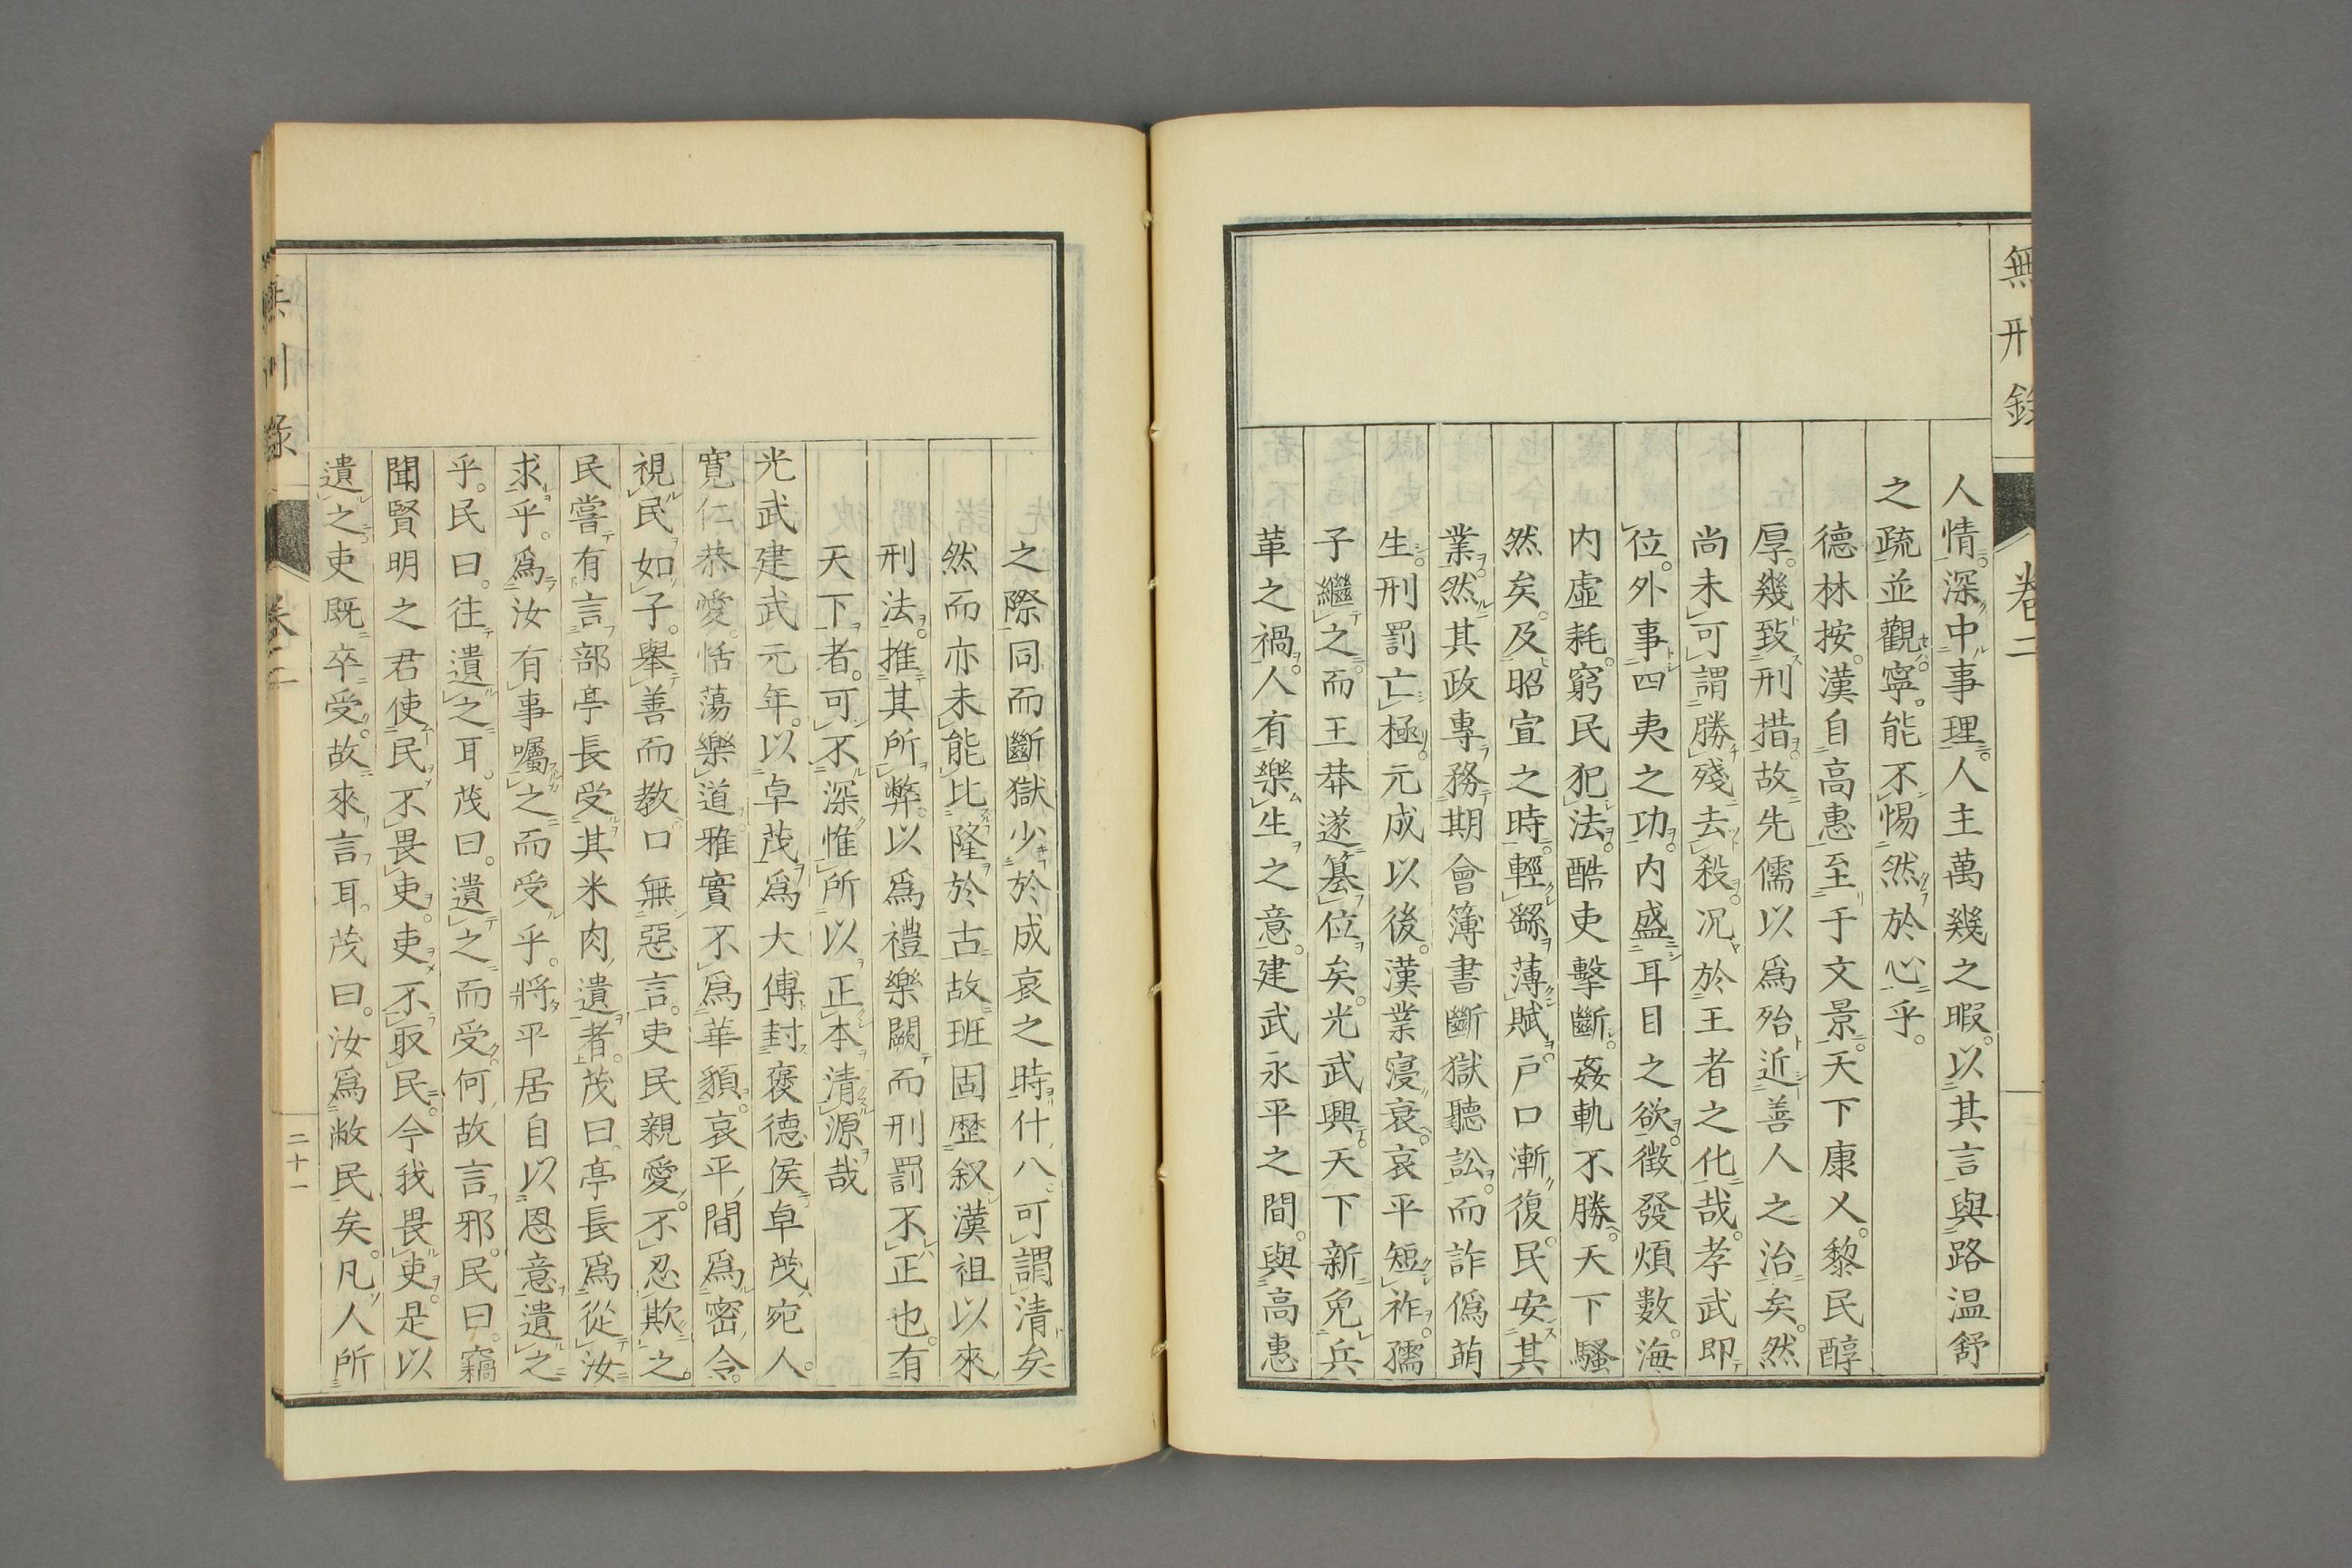 無刑錄
卷二
人情。深中事理。人主萬幾之暇。以其言與路溫舒
之疏。並觀寧。能不惕然於心乎。
德林按。漢自高惠至于文景。天下康乂。黎民醇
厚。幾致刑措。故先儒以爲殆近善人之治矣。然
尚未可謂勝殘去殺。況於王者之化哉。孝武即
位。外事四夷之功。內盛耳目之欲。徵發煩數。海
內虛耗。窮民犯法。酷吏擊斷。姦軌不勝。天下騷
然矣。及昭宣之時。輕繇薄賦。戶口漸復。民安其
業。然其政專務期會簿書斷獄聽訟。而詐僞萌
生。刑罰亡極。元成以後。漢業寖衰。哀平短祚。孺
子繼之。而王莽遂簒位矣。光武興。天下新免兵
革之禍。人有樂生之意。建武永平之間。與高惠
之際同而斷獄少於成哀之時什八。可謂清矣
然而亦未能比隆於古。故班固歷叙漢祖以來
刑法。推其所弊。以爲禮樂闕而刑罰不正也。有
天下者。可不深惟所以正本清源哉
光武建武元年。以卓茂爲大傅封褒德侯卓茂宛人。
寬仁恭愛。恬蕩樂道雅實不爲華貌。哀平間爲密令。
視民如子。舉善而教口無惡言。吏民親愛。不忍欺之。
民嘗有言部亭長受其米肉遺者。茂曰。亭長爲從汝
求乎。爲汝有事囑之而受乎。將平居自以恩意遺之
乎。民曰。往遺之耳。茂曰。遺之而受。何故言邪。民曰。竊
聞賢明之君使民不畏吏。吏不取民。今我畏吏。是以
遺之吏既卒受。故來言耳。茂曰。汝爲敝民矣。凡人所
二十一
卷二